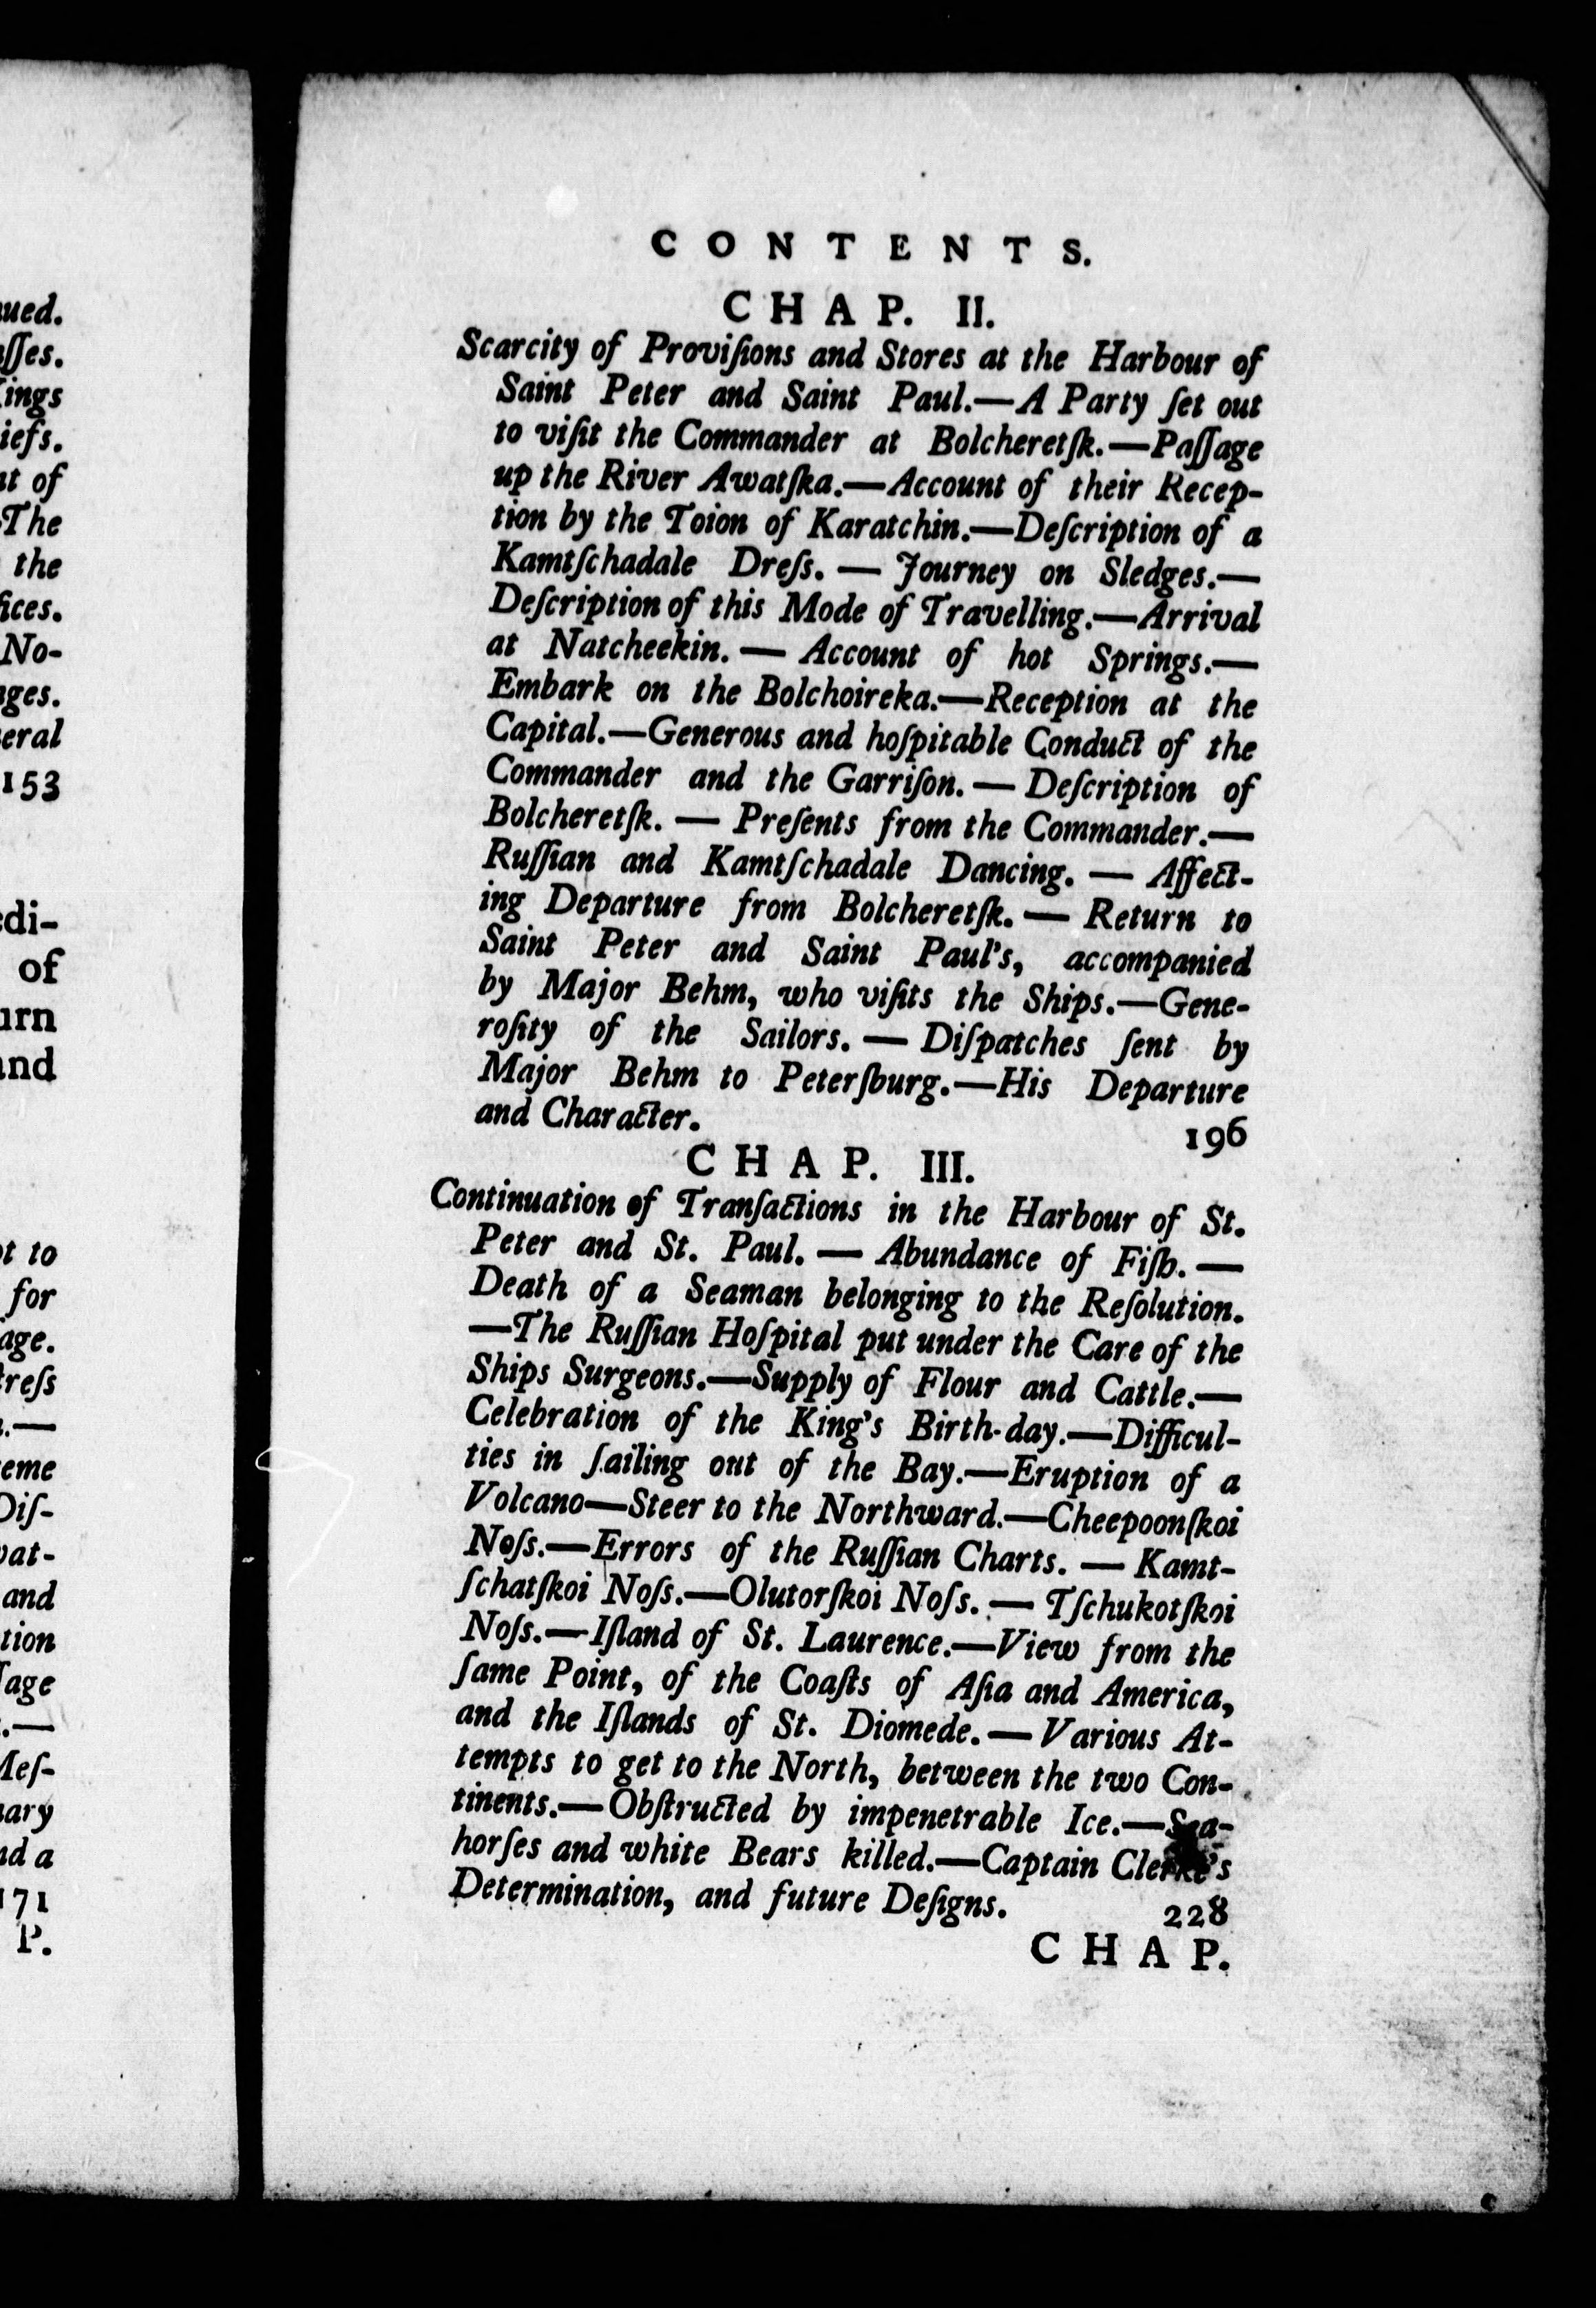 ued.
ſſes.
ings
iefs.
t of
The
the
ices.
No-
ges.
eral
153
edi-
of
urn
and
t to
for
age.
reſs
.—
eme
Diſ-
at-
and
tion
ſage
.—
Meſ-
ary
d a
171
P.
CONTENTS.
CHAP. II.
Scarcity of Proviſions and Stores at the Harbour of
Saint Peter and Saint Paul.—A Party ſet out
to viſit the Commander at Bolcheretſk.—Paſſage
up the River Awatſka.—Account of their Recep-
tion by the Toion of Karatchin.—Deſcription of a
Kamtſchadale Dreſs. — Journey on Sledges.—
Deſcription of this Mode of Travelling.—Arrival
at Natcheekin. — Account of hot Springs.—
Embark on the Bolchoireka.—Reception at the
Capital.—Generous and hoſpitable Conduct of the
Commander and the Garriſon. — Deſcription of
Bolcheretſk. — Preſents from the Commander.—
Ruſſian and Kamtſchadale Dancing. — Affect-
ing Departure from Bolcheretſk. — Return to
Saint Peter and Saint Paul's, accompanied
by Major Behm, who viſits the Ships.—Gene-
roſity of the Sailors. — Diſpatches ſent by
Major Behm to Peterſburg.—His Departure
and Character. 196
CHAP. III.
Continuation of Tranſactions in the Harbour of St.
Peter and St. Paul. — Abundance of Fiſh. —
Death of a Seaman belonging to the Reſolution.
—The Ruſſian Hoſpital put under the Care of the
Ships Surgeons.—Supply of Flour and Cattle.—
Celebration of the King's Birth-day.—Difficul-
ties in ſailing out of the Bay.—Eruption of a
Volcano—Steer to the Northward.—Cheepoonſkoi
Noſs.—Errors of the Ruſſian Charts. — Kamt-
ſchatſkoi Noſs.—Olutorſkoi Noſs. — Tſchukotſkoi
Noſs.—Iſland of St. Laurence.—View from the
ſame Point, of the Coaſts of Aſia and America,
and the Iſlands of St. Diomede. — Various At-
tempts to get to the North, between the two Con-
tinents.—Obſtructed by impenetrable Ice.—Sea-
horſes and white Bears killed.—Captain Clerke's
Determination, and future Deſigns. 228
CHAP.